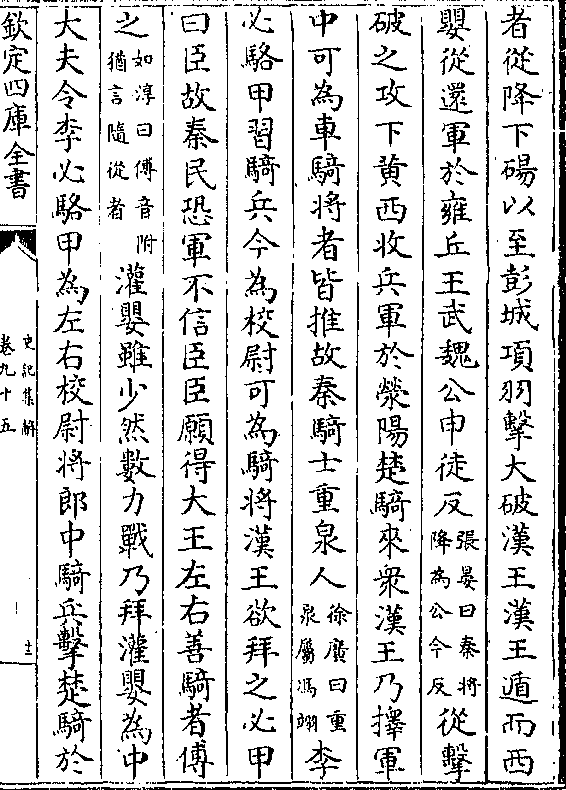 者從降下碭以至彭城項羽擊大破漢王漢王遁而西
嬰從還軍於雍丘王武魏公申徒反張晏曰秦將降為公今反從擊
破之攻下黄西收兵軍於滎陽楚騎來衆漢王乃擇軍
中可為車騎將者皆推故秦騎士重泉人徐廣曰重泉屬馮翊李
必駱甲習騎兵今為校尉可為騎將漢王欲拜之必甲
曰臣故秦民恐軍不信臣臣願得大王左右善騎者傅
之如淳曰傅音附猶言隨從者灌嬰雖少然數力戰乃拜灌嬰為中
大夫令李必駱甲為左右校尉將郎中騎兵擊楚騎於
欽定四庫全書
史記集解
卷九十五